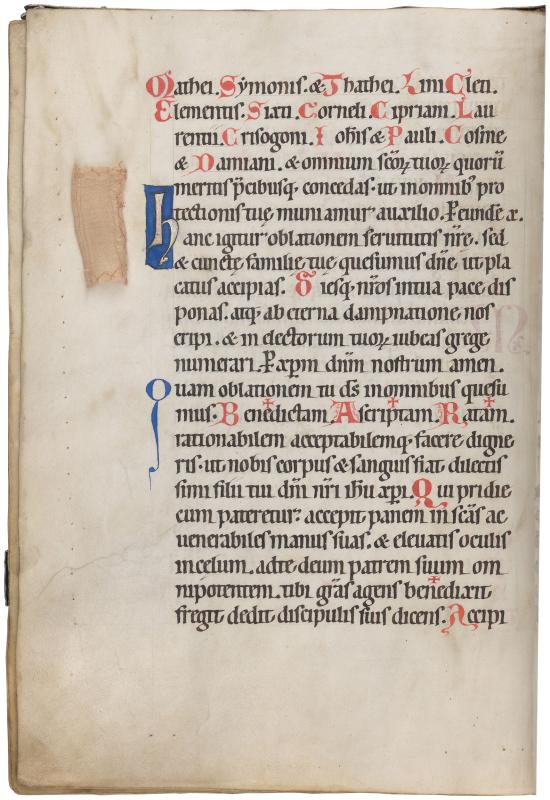 Mathei. Symonis. & Thathei. Lini Cleti.
Clementis. Sixti. Corneli. Cipriani. Lau
rentii. Crisogoni. Ioħis & Pauli. Cosme
& Damiani. & omnium scōꝝ tuoꝝ quorū
meritis p̄cibusq; concedas. ut inomnib; pro
tectionis tue muniamur auxilio. P eunde x.
hanc igitur oblationem seruitutis nr̄e. sed
& cuncte familie tue quesumus dn̄e ut pla
catus accipias. Diesq; nr̄os intua pace dis
ponas. atq; ab eterna dampnatione nos
eripi. & in electorum tuoꝝ iubeas grege
numerari. P xp̄m dn̄m nostrum amen.
Quam oblationem tu ds̄ inomnibus quesu
mus. Benedictam. Ascriptam. Ratam.
rationabilem acceptabilemq; facere digne
ris. ut nobis corpus & sanguis fiat dilectis
simi filii tui dn̄i nr̄i ih̄u xp̄i. Qui pridie
cum pateretur. accepit panem in scās ac
uenerabiles manus suas. & eleuatis oculis
incelum. adte deum patrem suum om
nipotentem. tibi grās agens benedixit
fregit dedit discipulis suis dicens. Accipi